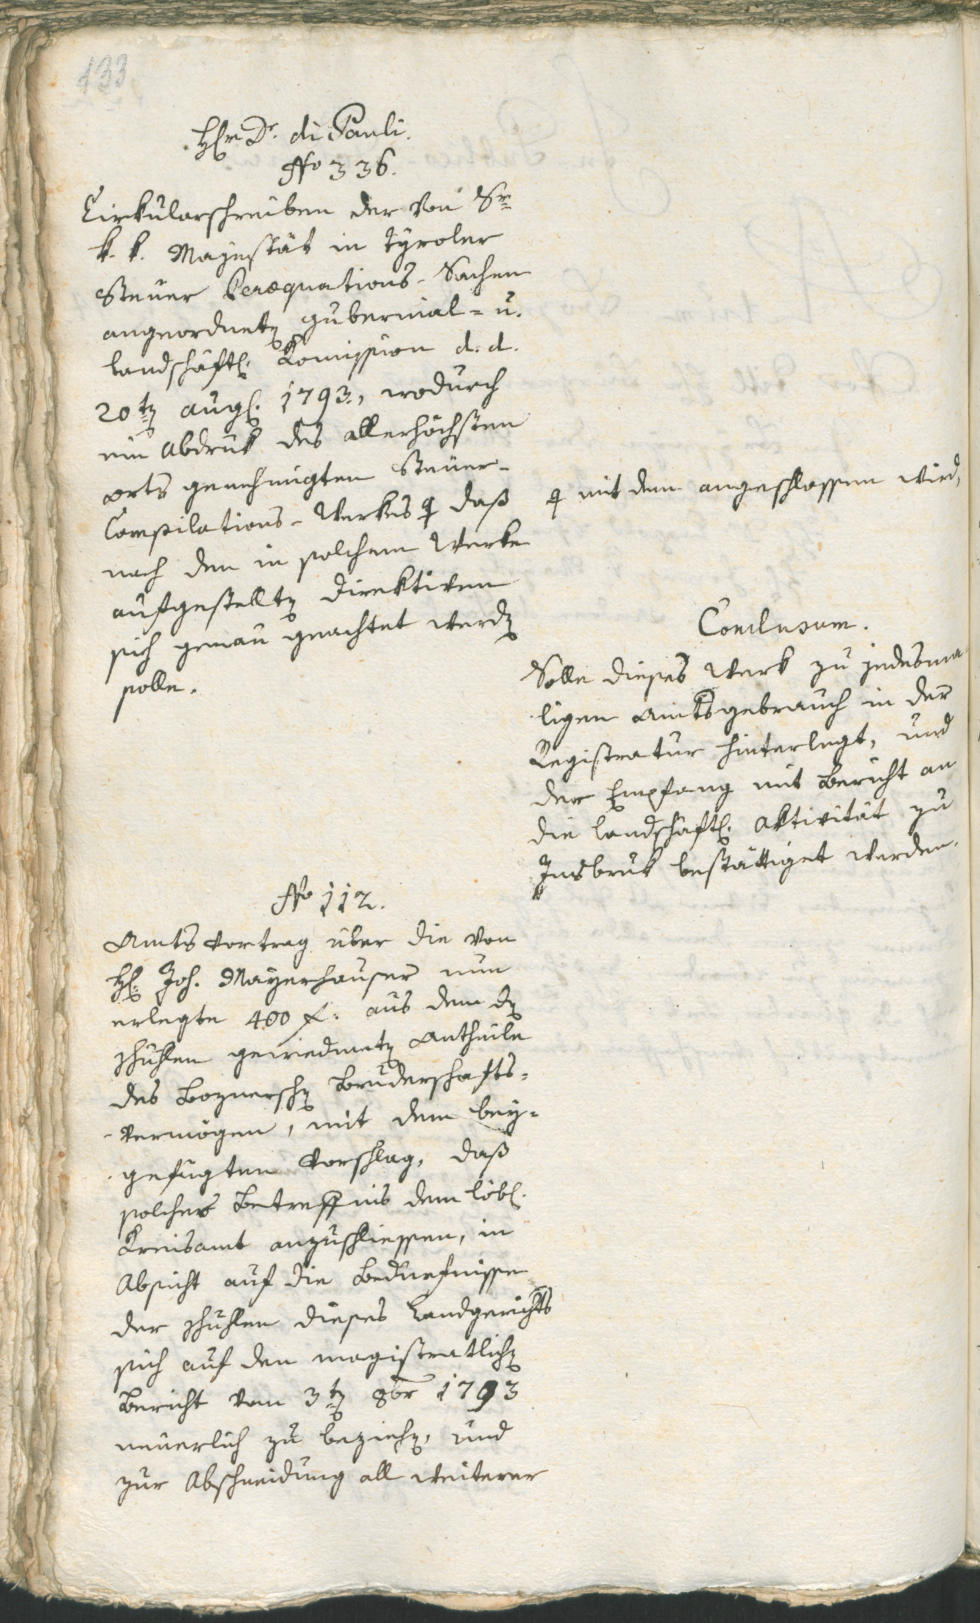 133
H(err)n Dr. di Pauli.
No 336.
Cirkularschreiben der von Sr
k. k. Mayestät in Tyroler
Steuer Peræquations-Sachen
angeordneten gubernial- u.
landschäftl. Komission d. d.
20ten augl. 1793., wodurch
ein Abdruk des allerhöchsten
orts genehmigten Steuer-
Compilations-Werkes ϥ daß
nach den in solchem Werke
aufgestellten Direktiven
sich genau geachtet werden
solle.
ϥ mit dem angeschlossen wird,
Conclusum.
Solle dieses Werk zu jedesma
ligen Amtsgebrauch in der
Registratur hinterlegt, und
der Empfang mit Bericht an
die landschäftl. Aktivität zu
Insbruk bestättiget werden.
No 112.
Amtsvortrag über die von
H: Joh. Mayrhauser nun
erlegte 400 f: aus dem den
Schullen gewiedmeten Antheile
des Boznerschen Bruderschafts-
vermögen, mit dem bey-
gefügten Vorschlag, daß
solches Betreffnis dem löbl.
Kreisamt anzuschliessen, in
Absicht auf die Bedürfnisse
der Schullen dieses Landgerichts
sich auf den magistratlichen
Bericht vom 3ten 8br 1793
neuerlich zu beziehen, und
zur Abschneidung all weiterer